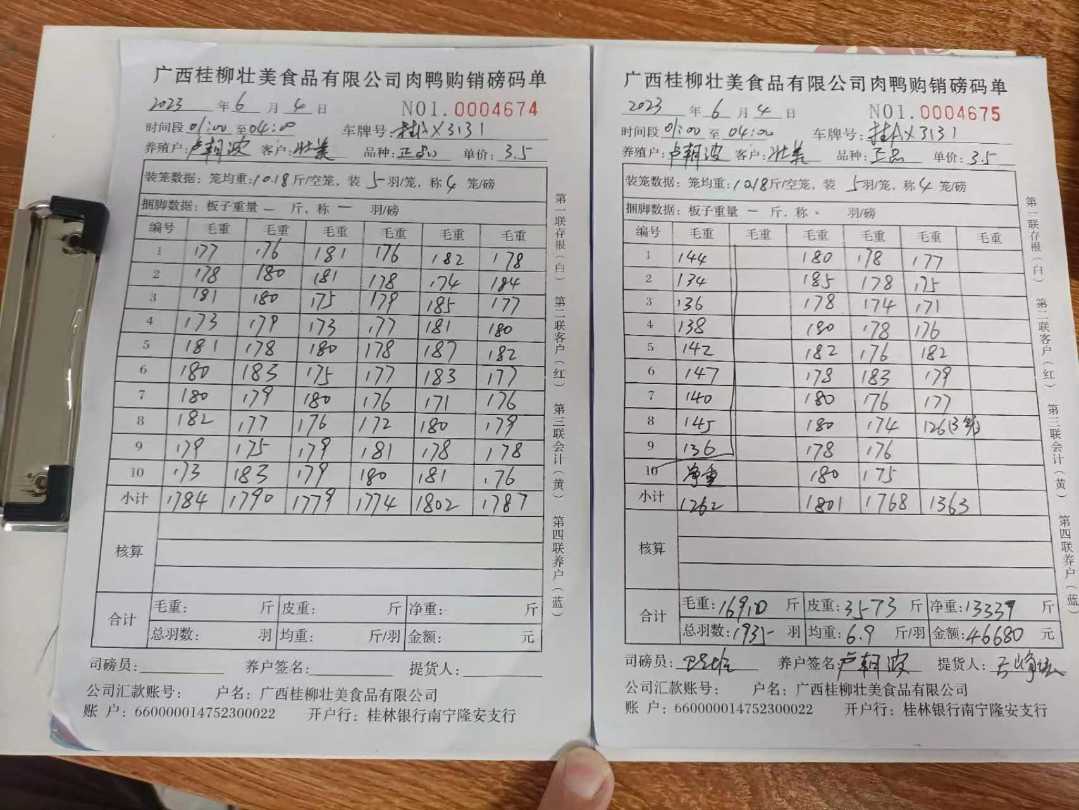 广西桂柳壮美食品有限公司肉鸭购销磅码单
2023 年 6 月 4 日 NO1. 0004674
时间段 01:00 至 04:00 车牌号: 桂AX3131
养殖户: 卢朝波 客户: 壮美 品种: 正品 单价: 3.5
装笼数据: 笼均重: 10.18 斤/空笼, 装 5 羽/笼, 称 4 笼/磅
捆脚数据: 板子重量 一 斤, 称 一 羽/磅
编号 毛重 毛重 毛重 毛重 毛重 毛重
1 177 176 181 176 182 178
2 178 180 181 178 174 184
3 181 180 175 179 185 177
4 173 179 173 177 181 180
5 181 178 180 178 187 182
6 180 183 175 177 183 177
7 180 179 180 176 171 176
8 182 177 176 172 180 179
9 179 175 179 181 178 178
10 173 183 179 180 181 176
小计 1784 1790 1779 1774 1802 1787
核算
合计 毛重: 斤 皮重: 斤 净重: 斤
总羽数: 羽 均重: 斤/羽 金额: 元
司磅员: 养户签名: 提货人:
公司汇款账号: 户名: 广西桂柳壮美食品有限公司
账 户: 660000014752300022 开户行: 桂林银行南宁隆安支行
第一联存根(白) 第二联客户(红) 第三联会计(黄) 第四联养户(蓝)
广西桂柳壮美食品有限公司肉鸭购销磅码单
2023 年 6 月 4 日 NO1. 0004675
时间段 01:00 至 04:00 车牌号: 桂AX3131
养殖户: 卢朝波 客户: 壮美 品种: 正品 单价: 3.5
装笼数据: 笼均重: 10.18 斤/空笼, 装 5 羽/笼, 称 4 笼/磅
捆脚数据: 板子重量 一 斤, 称 - 羽/磅
编号 毛重 毛重 毛重 毛重 毛重
1 144 180 178 177
2 134 185 178 175
3 136 178 174 171
4 138 180 178 176
5 142 182 176 182
6 147 178 183 179
7 140 180 176 177
8 145 180 174 126
9 136 178 176
10 净重 180 175
小计 1262 1801 1768 1363
核算
合计 毛重: 16910 斤 皮重: 3573 斤 净重: 13337 斤
总羽数: 1935 羽 均重: 6.9 斤/羽 金额: 46680 元
司磅员: 养户签名: 卢朝波 提货人:
公司汇款账号: 户名: 广西桂柳壮美食品有限公司
账 户: 660000014752300022 开户行: 桂林银行南宁隆安支行
第一联存根(白) 第二联客户(红) 第三联会计(黄) 第四联养户(蓝)